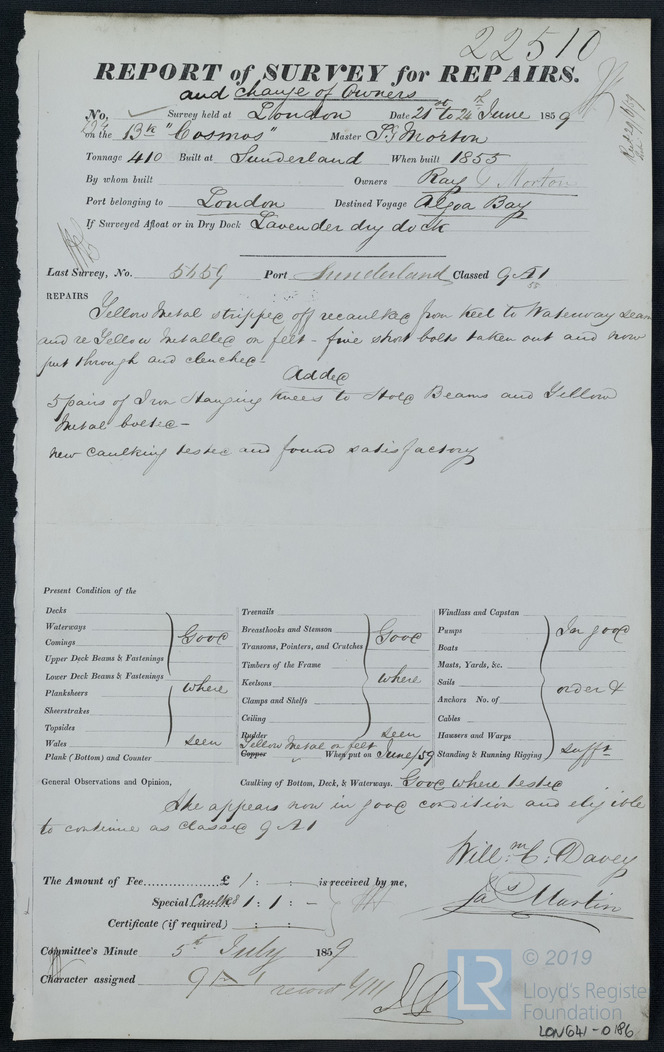 22510
REPORT of SURVEY for REPAIRS.
and change of Owners
No. Survey held at London Date 21st to 24th June 1859
on the Bk "Cosmos" Master J G Morton
Tonnage 410 Built at Sunderland When built 1855
By whom built Owners Ray & Morton
Port belonging to London Destined Voyage Algoa Bay
If Surveyed Afloat or in Dry Dock Lavender dry dock
Last Survey, No. 5459 Port Sunderland Classed 9 A1
55
REPAIRS Yellow Metal stripped off recaulked from Keel to Waterway seam
and re Yellow Metalled on felt - five short bolts taken out and now
put through and clenched -
Added
5 pairs of Iron Hanging Knees to Hold Beams and Yellow
Metal bolted -
new caulking tested and found satisfactory
Present Condition of the
Decks
Waterways
Comings
Upper Deck Beams & Fastenings
Lower Deck Beams & Fastenings
Planksheers
Sheerstrakes
Topsides
Wales
Plank (Bottom) and Counter
Good
where
seen
Treenails
Breasthooks and Stemson
Transoms, Pointers, and Crutches
Timbers of the Frame
Keelsons
Clamps and Shelfs
Ceiling
Rudder
Good
where
seen
Yellow Metal on felt
Copper When put on June/59
Windlass and Capstan
Pumps
Boats
Masts, Yards, &c.
Sails
Anchors No. of
Cables
Hawsers and Warps
Standing & Running Rigging
In good
order &
sufft
General Observations and Opinion, Caulking of Bottom, Deck, & Waterways. Good where tested
She appears now in good condition and eligible
to continue as classed 9 A1
Willm. C: Davey
Jas Martin
The Amount of Fee £ 1 : - : - is received by me,
Special 1 : 1 : -
Certificate (if required) : :
Committee's Minute 5th July 1859
Character assigned 9 A 1
© 2019
LR
Lloyd's Register
Foundation
LON641-0186